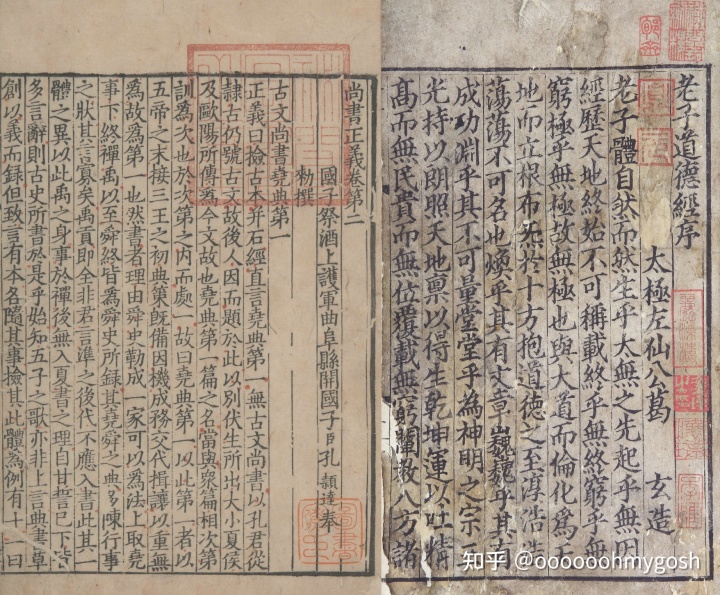 老子道德經序
太極左仙公葛 玄造
老子體自然而然生乎太無之先起乎無因
經歷天地終始不可稱載終乎無終窮乎無
窮極乎無極故無極也與大道而倫化為天
地而立根布炁於十方抱道德之至淳浩浩
蕩蕩不可名也煥乎其有文章巍巍乎其有
成功淵乎其不可量堂堂乎為神明之宗三
光持以朗照天地稟以得生乾坤運以吐精
高而無民貴而無位覆載無窮闡教八方諸
尚書正義卷第二
國子祭酒上護軍曲阜縣開國子臣孔 穎達奉
勑撰
古文尚書堯典第一
正義曰檢古本并石經直言堯典第一無古文尚書以孔君從
隸古仍號古文故後人因而題於此以別伏生所出大小夏侯
及歐陽所傳為今文故也堯典第一篇之名當與衆篇相次第
訓為次也於次第之內而處一故曰堯典第一以此第一者以
五帝之末接三王之初典策既備因機成務交代揖讓以垂無
為故為第一也然書者理由舜史勒成一家可以為法上取堯
事下終禪禹以至舜終皆為舜史所錄其堯舜之典多陳行事
之狀其言寡矣禹貢即全非君言準之後代不應入書此其一
體之異以此禹之身事於禪後無入夏書之理自甘誓已下皆
多言辭則古史所書於是乎始知五子之歌亦非上言典書草
創以義而錄但致言有本各隨其事檢其此體為例有十一曰
知乎 @ooooohmygosh